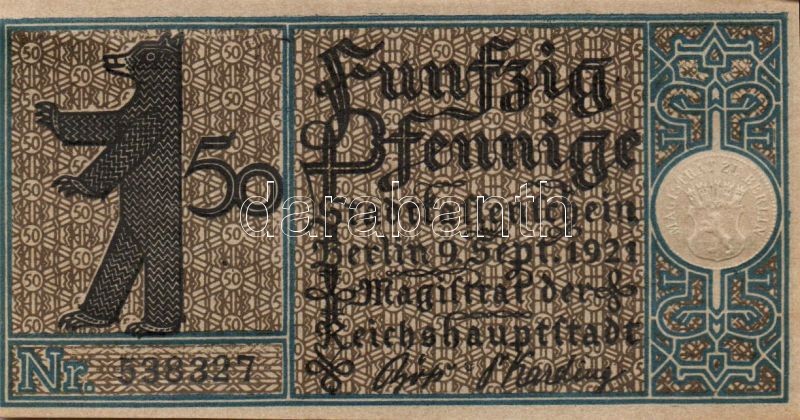 50
Funfzig
Pfennige
Stadtkassenschein
Berlin 9. Sept. 1921
Magistrat der
Reichshauptstadt
Nr. 538327
MAGISTRAT ZU BERLIN
darabanth